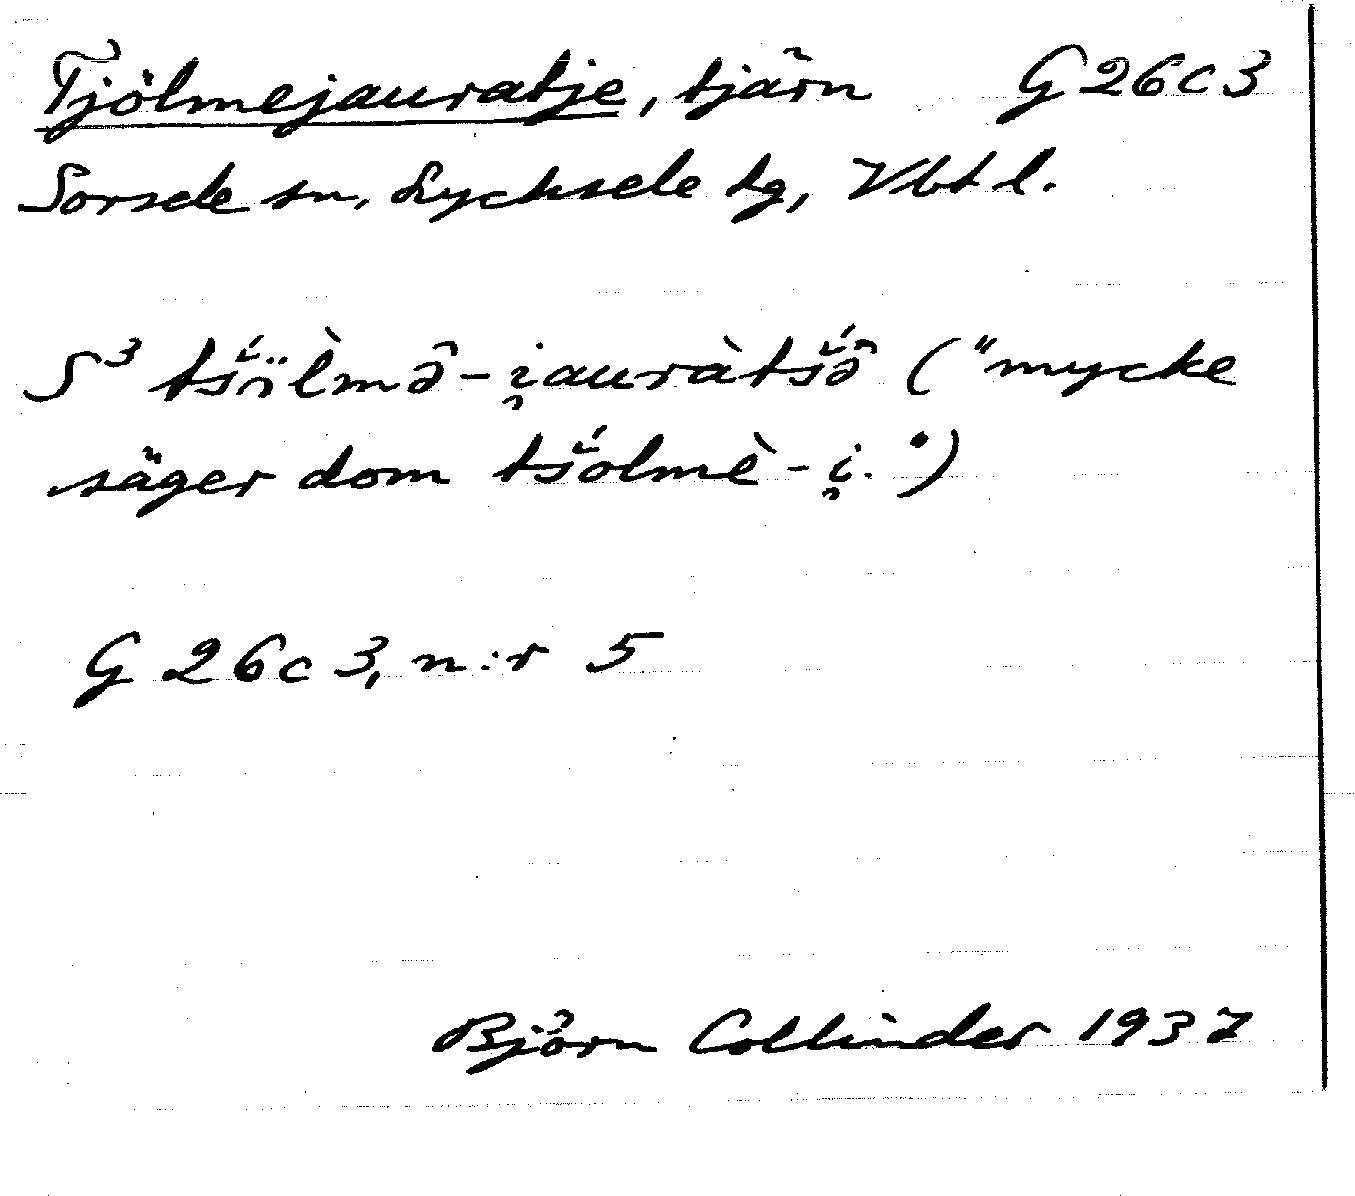 Tjölmejauratje, tjärn G 26 c 3
Sorsele sn, Lycksele tg, Vbt l.
S³ tš́ïl̀mə̑-i̯auràtš́ə̑ ("mycke
säger dom tš́olmè-i̯.")
G 26 c 3, n:r 5
Björn Collinder 1937